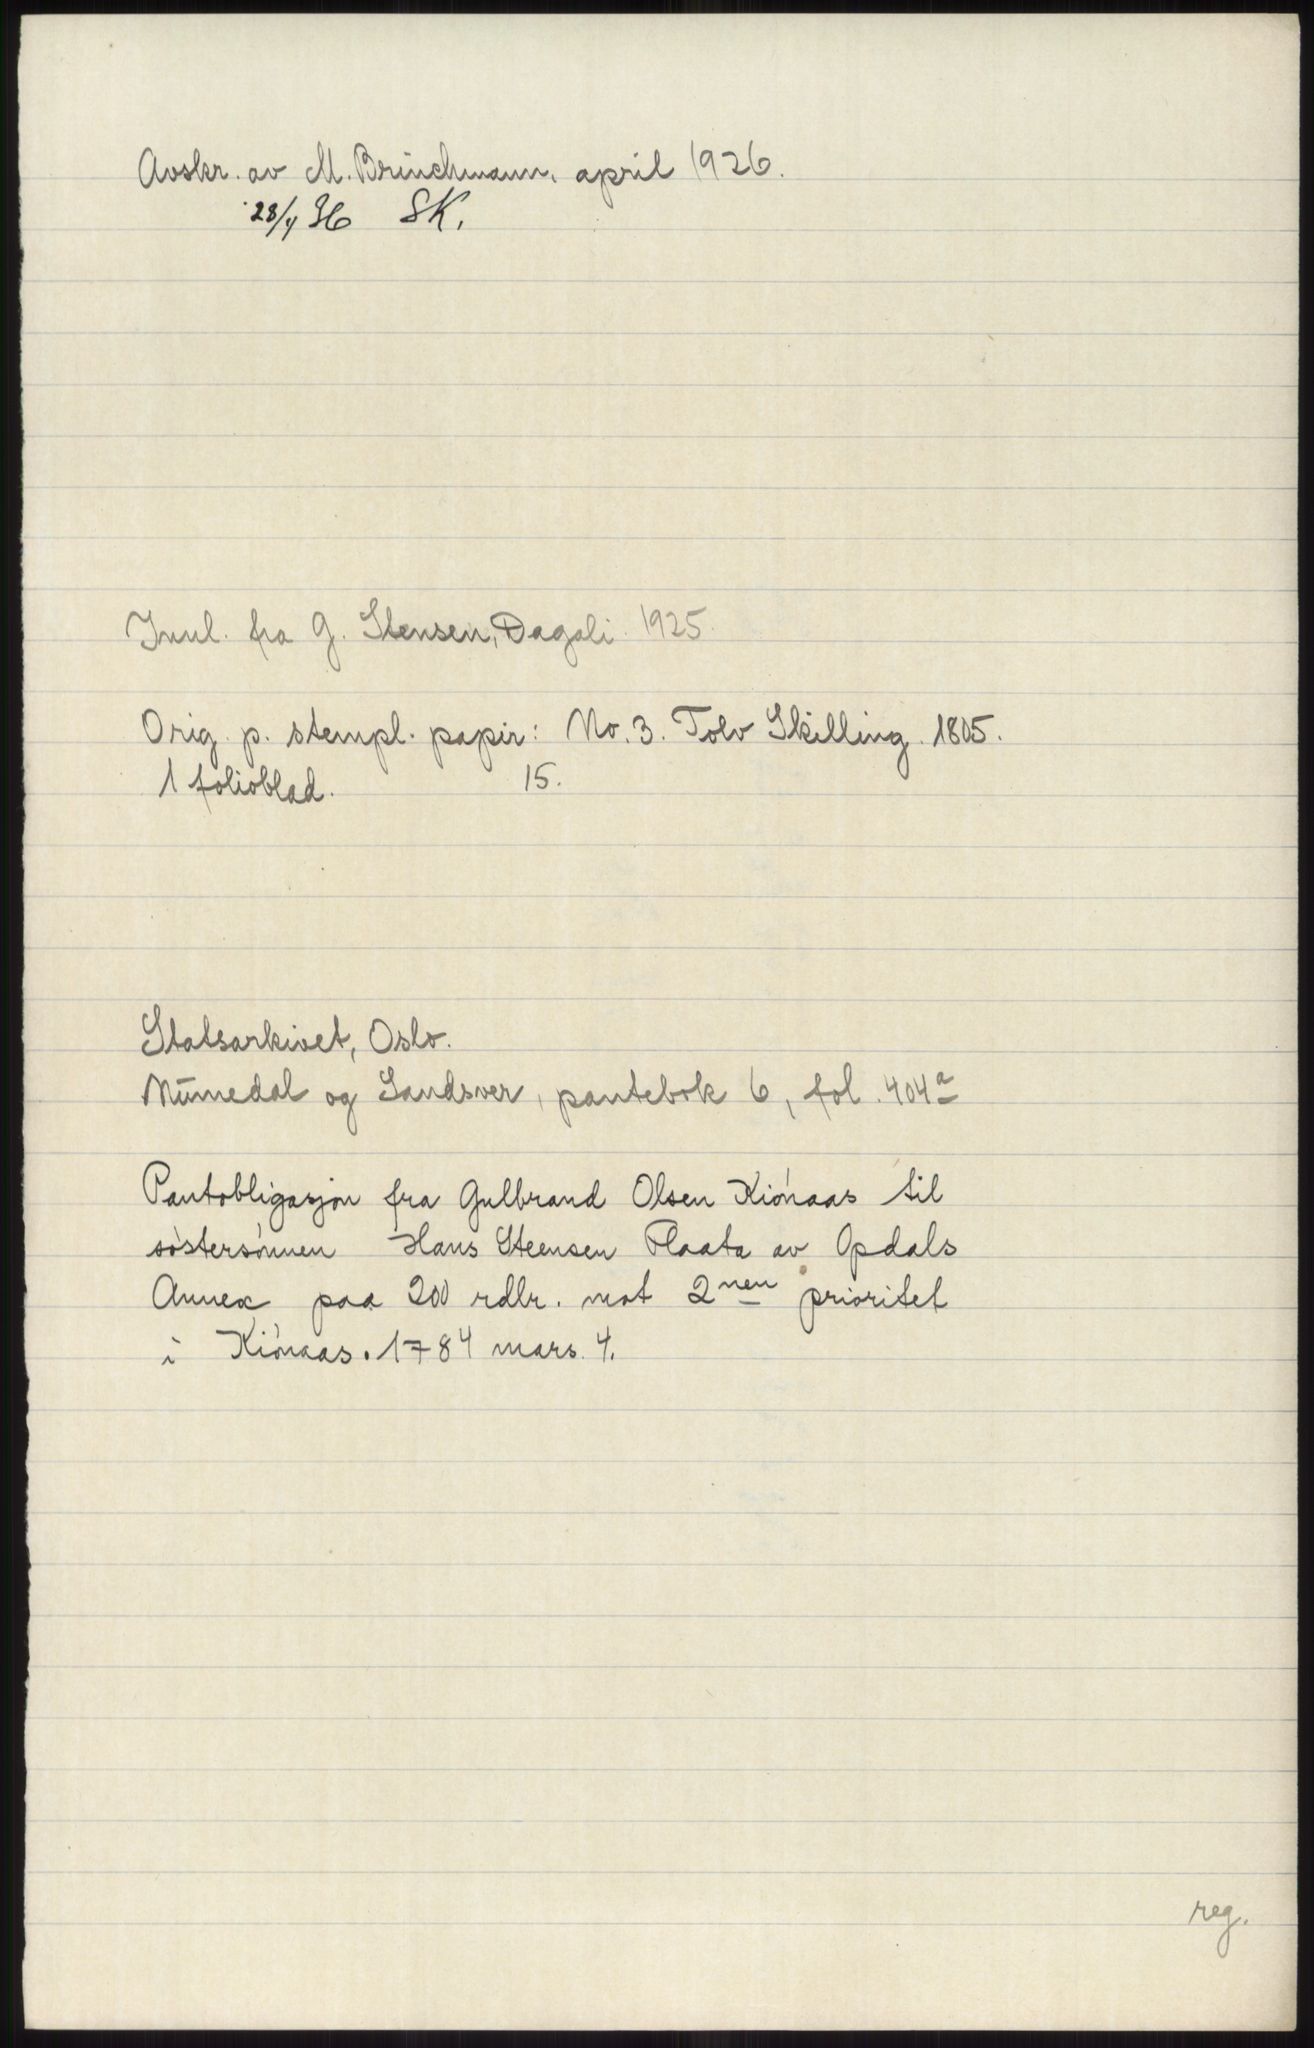 Avskr. av M. Brinchmann, april 1926.
28/4 36 SK.
Innl. fra G. Stensen, Dagali. 1925.
Orig. p. stempl. papir: No. 3. Tolv Skilling. 1805.
1 folioblad. 15.
Statsarkivet, Oslo.
Numedal og Sandsver, pantebok 6, fol. 404a
Pantobligasjon fra Gulbrand Olsen Kiönaas til
söstersönnen Hans Steensen Plaata av Opdals
Annex paa 200 rdlr. mot 2nen prioritet
i Kiönaas. 1784 mars 4.
reg.